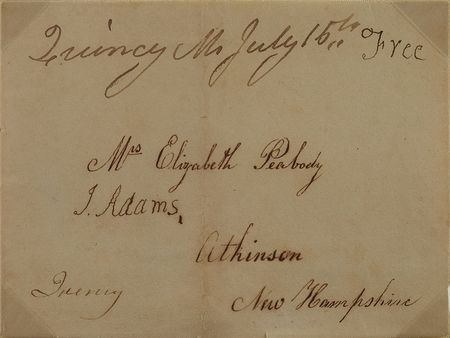 Quincy Ms July 15th Free
Mrs Elizabeth Peabody
J. Adams
Atkinson
Quincy
New Hampshire